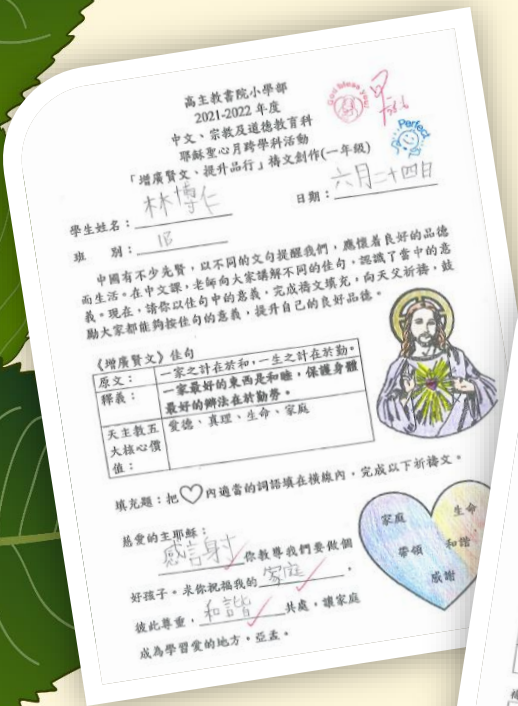 高主教書院小學部
2021-2022 年度
中文、宗教及道德教育科
耶穌聖心月跨學科活動
「增廣賢文、提升品行」禱文創作(一年級)
God bless you!
甲
Perfect
學生姓名：林博仁
日期：六月二十四日
班 別：1B
中國有不少先賢，以不同的文句提醒我們，應懷着良好的品德
而生活。在中文課，老師向大家講解不同的佳句，認識了當中的意
義。現在，請你以佳句中的意義，完成禱文填充，向天父祈禱，鼓
勵大家都能夠按佳句的意義，提升自己的良好品德。
《增廣賢文》佳句
原文： 一家之計在於和，一生之計在於勤。
釋義： 一家最好的東西是和睦，保護身體
最好的辦法在於勤勞。
天主教五 愛德、真理、生命、家庭
大核心價
值：
填充題：把♡內適當的詞語填在橫線內，完成以下祈禱文。
慈愛的主耶穌：
感謝你教導我們要做個
好孩子。求你祝福我的家庭，
彼此尊重，和諧共處，讓家庭
成為學習愛的地方。亞孟。
家庭
生命
帶領
和諧
感謝